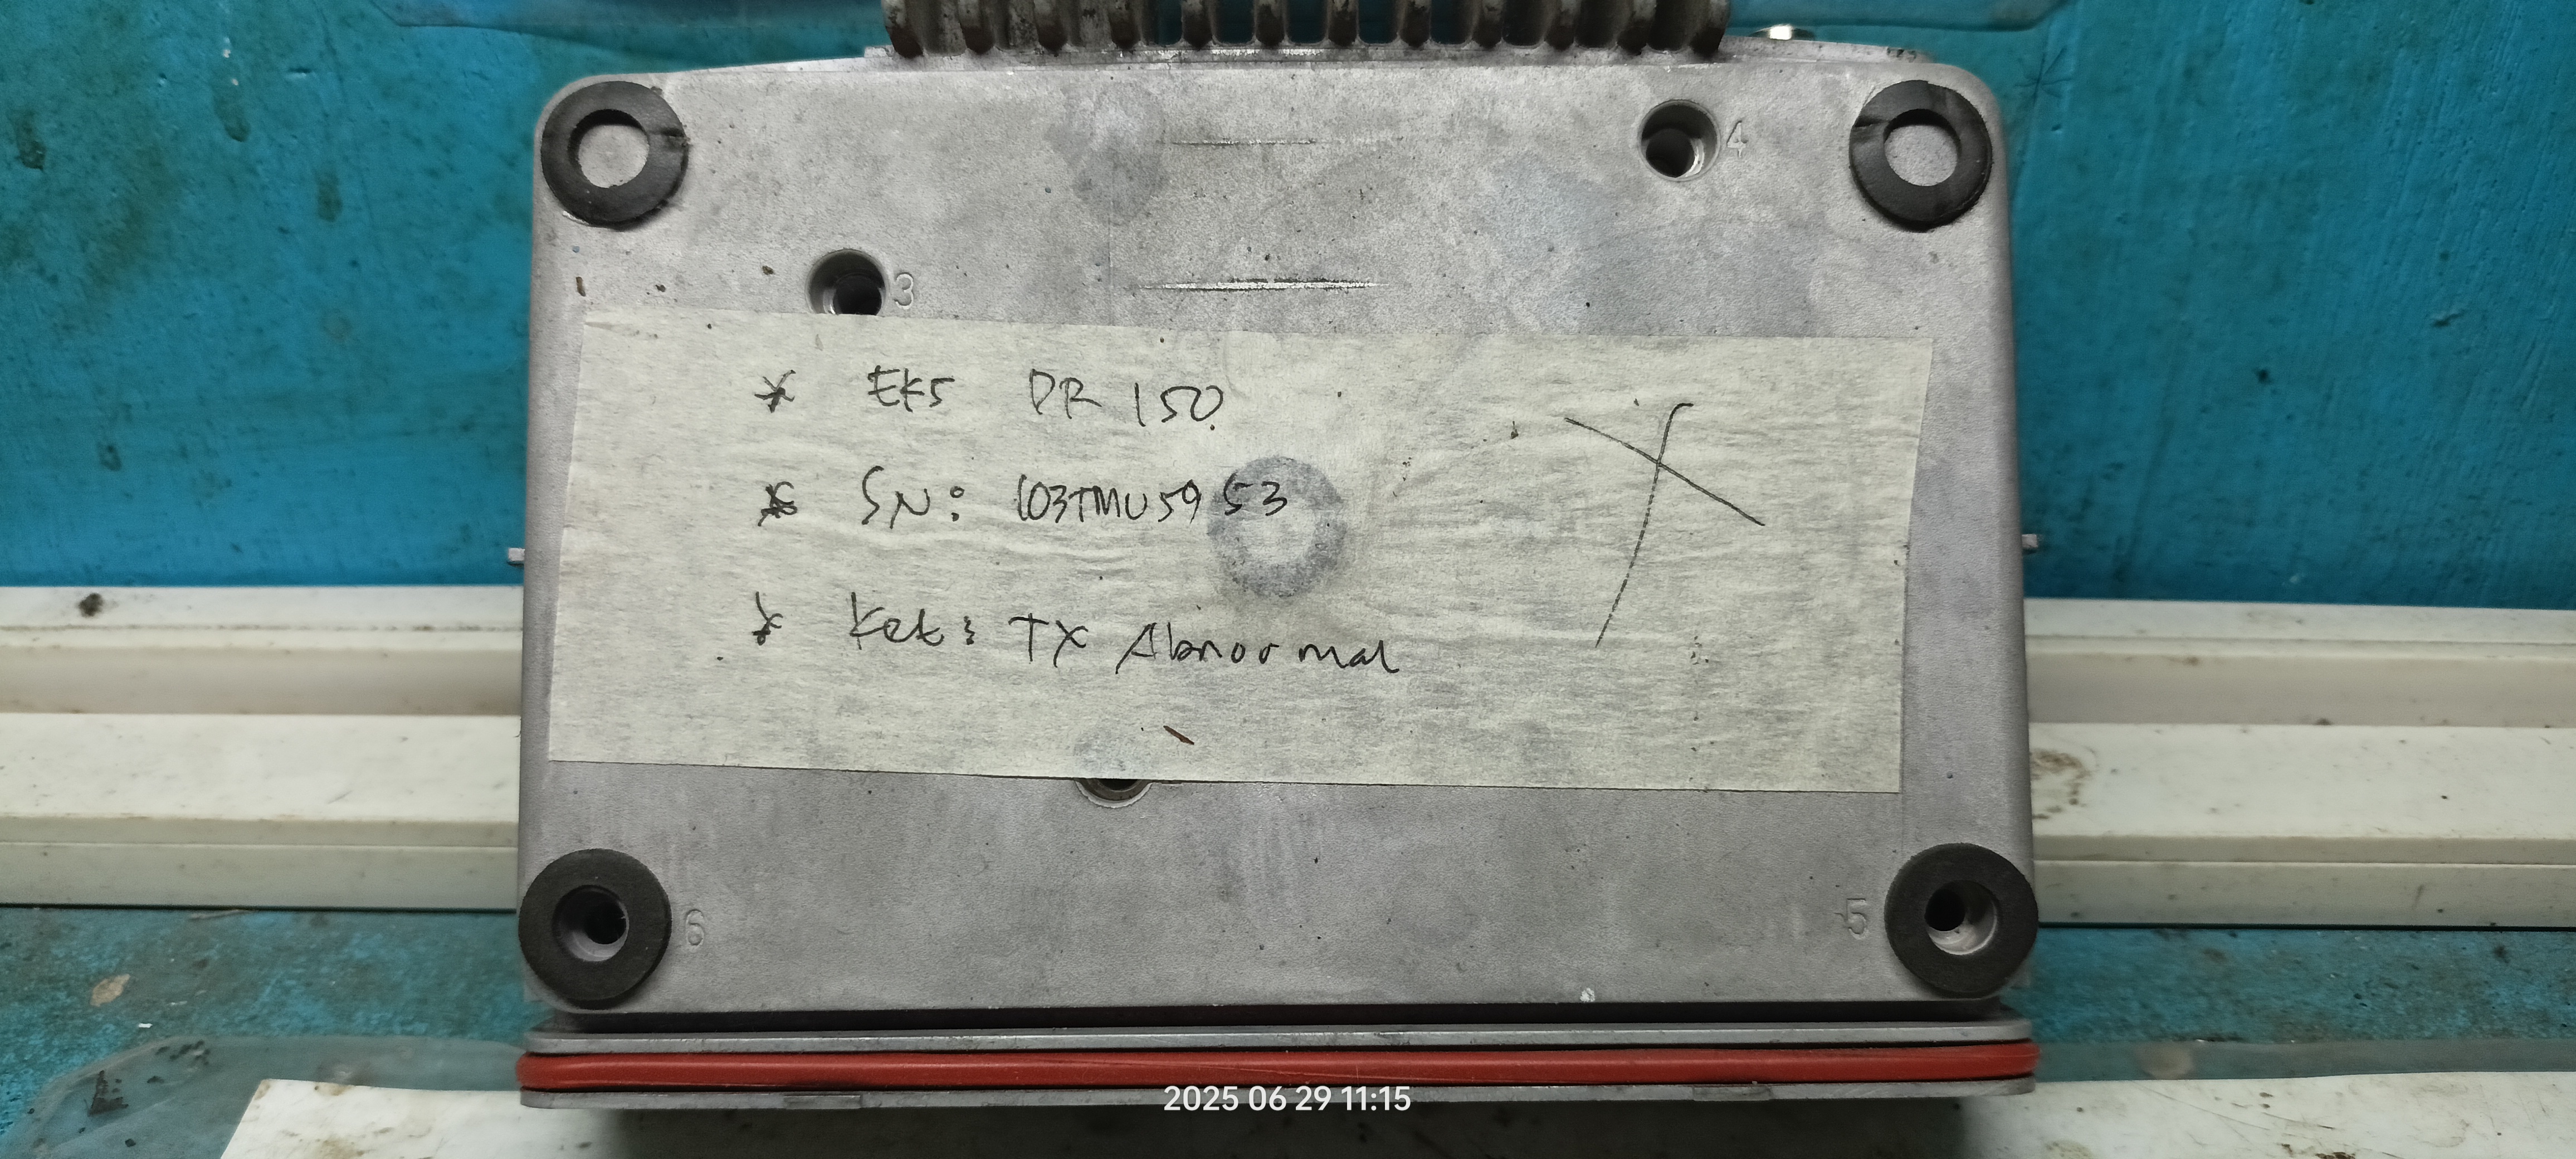 4
3
* EKS DR 150
* SN: 103TMU5953
* Ket: TX Abnormal
X
6
5
2025 06 29 11:15